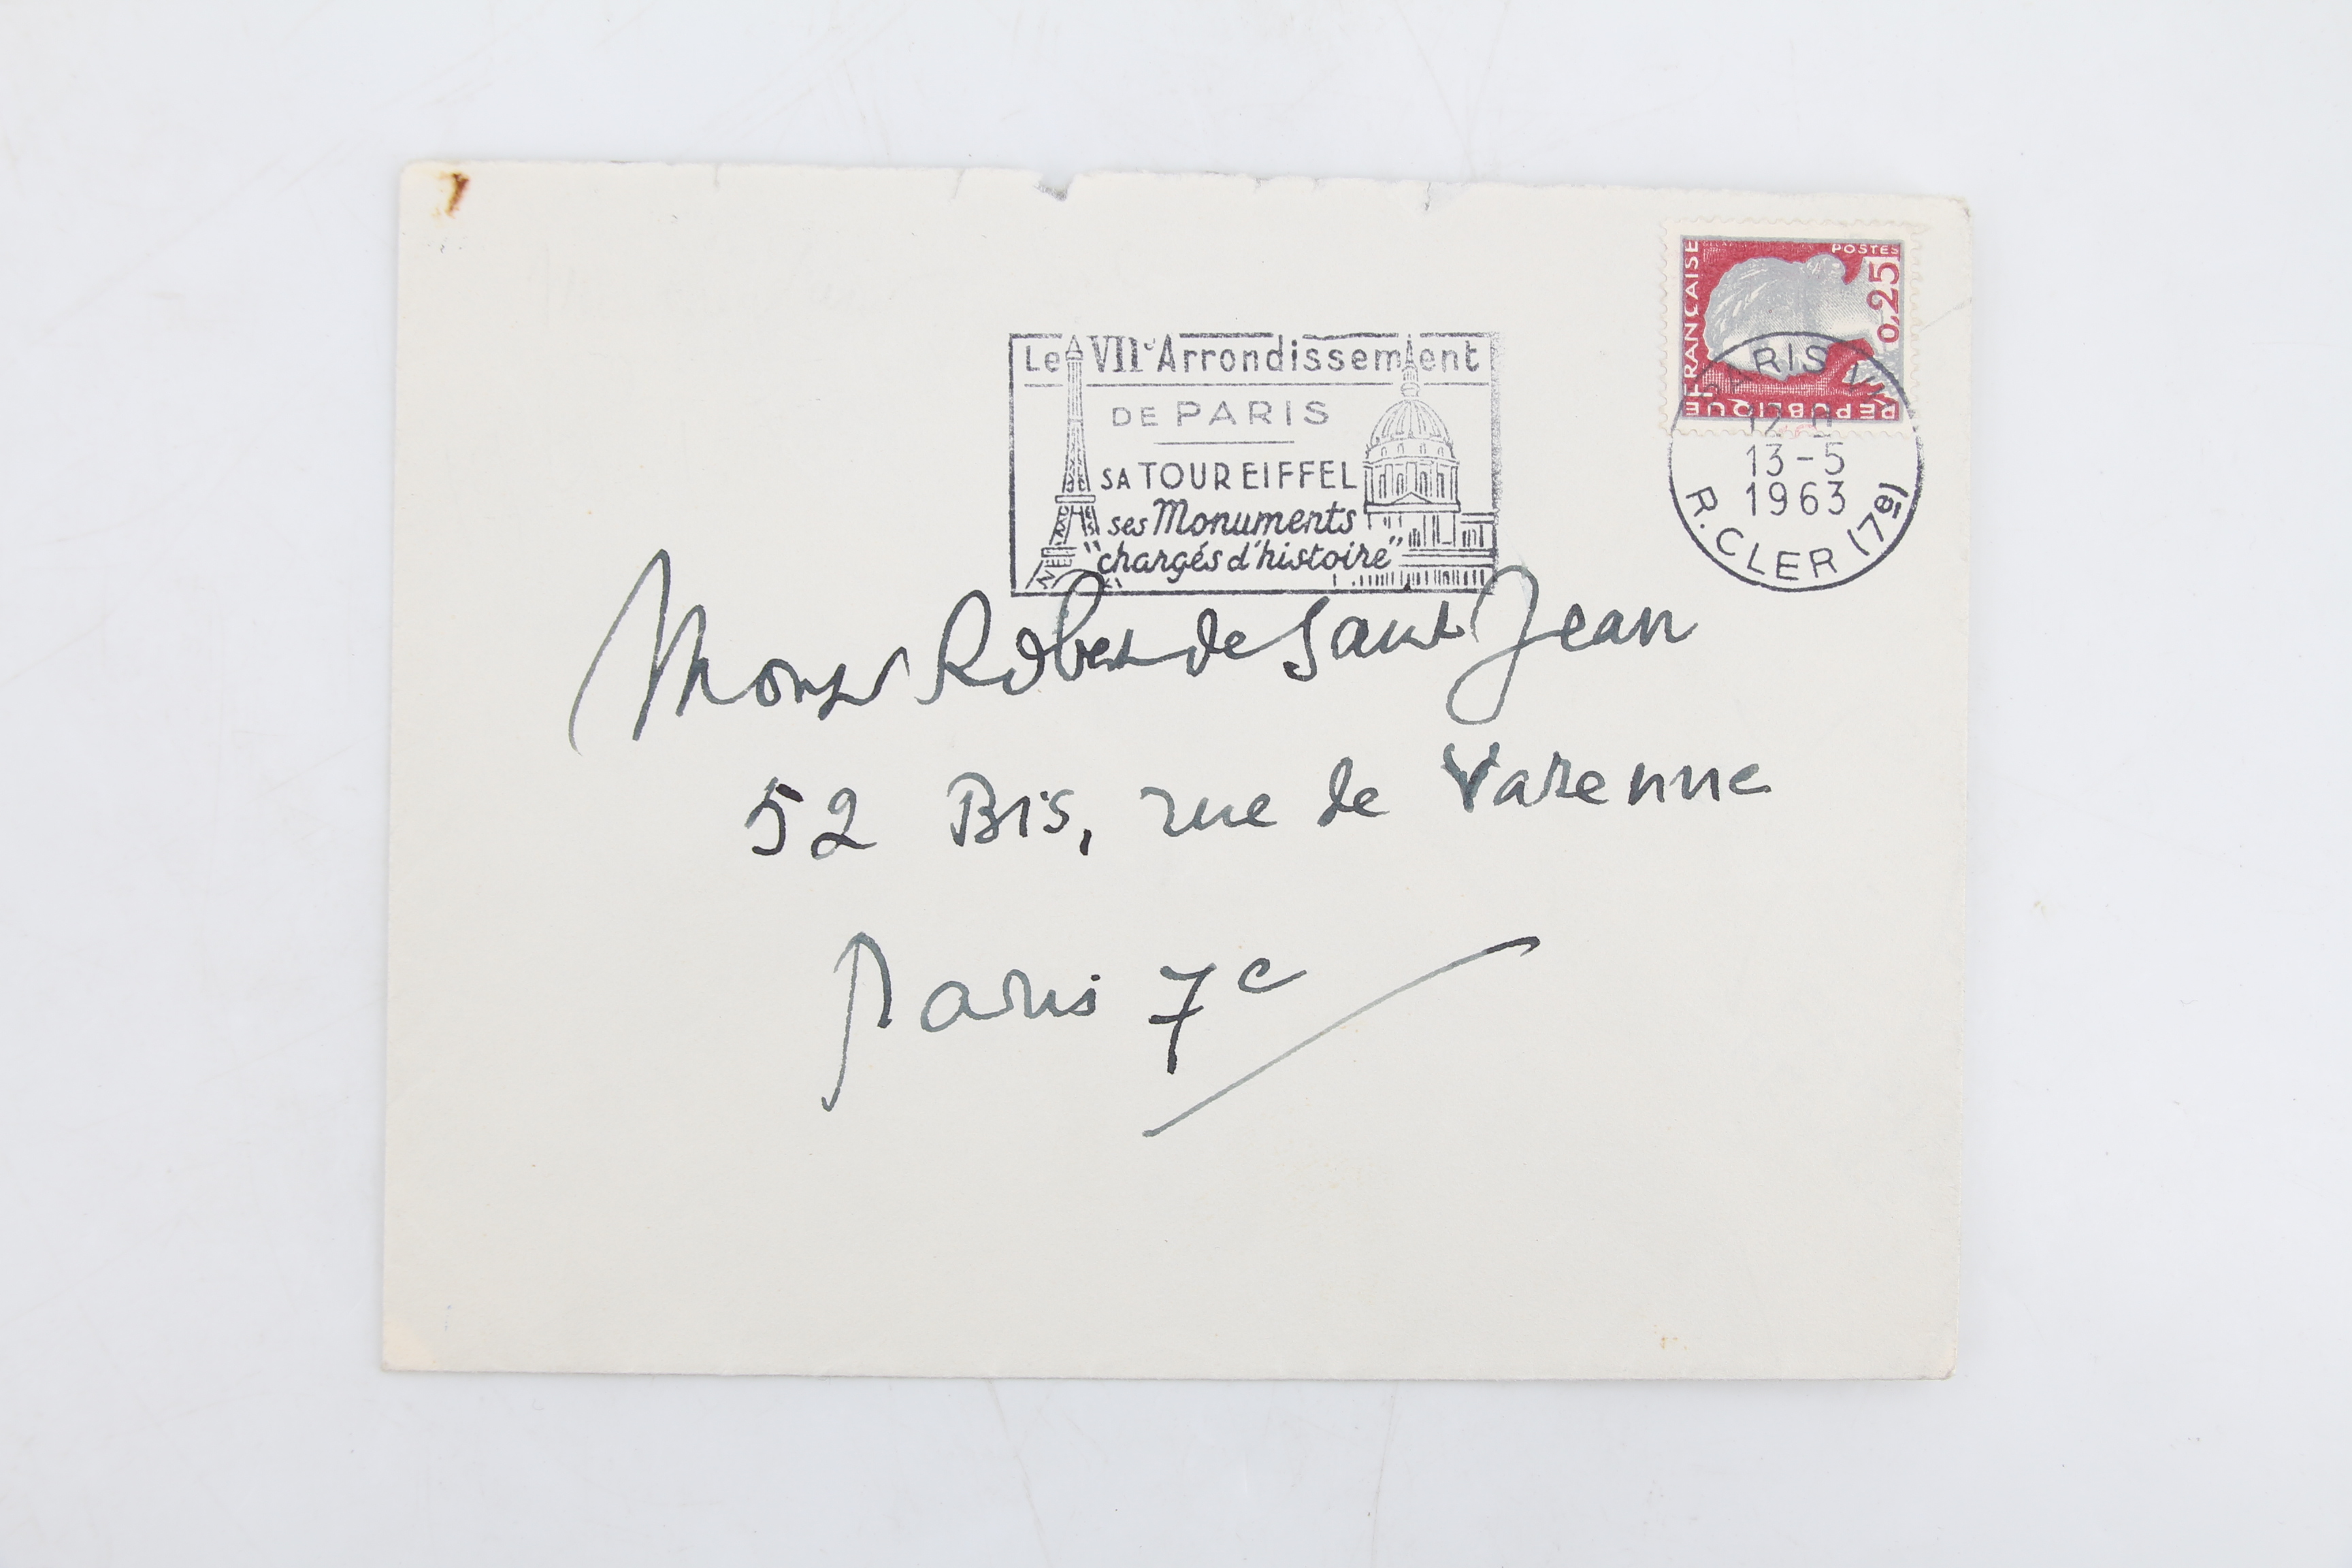 Le VIIe Arrondissement
DE PARIS
SA TOUR EIFFEL
ses Monuments
"chargés d'histoire"
POSTES
0,25
REPUBLIQUE FRANÇAISE
PARIS VII
13-5
1963
R. CLER (7e)
Monsr Robert de Saint Jean
52 Bis, rue de Varenne
Paris 7e